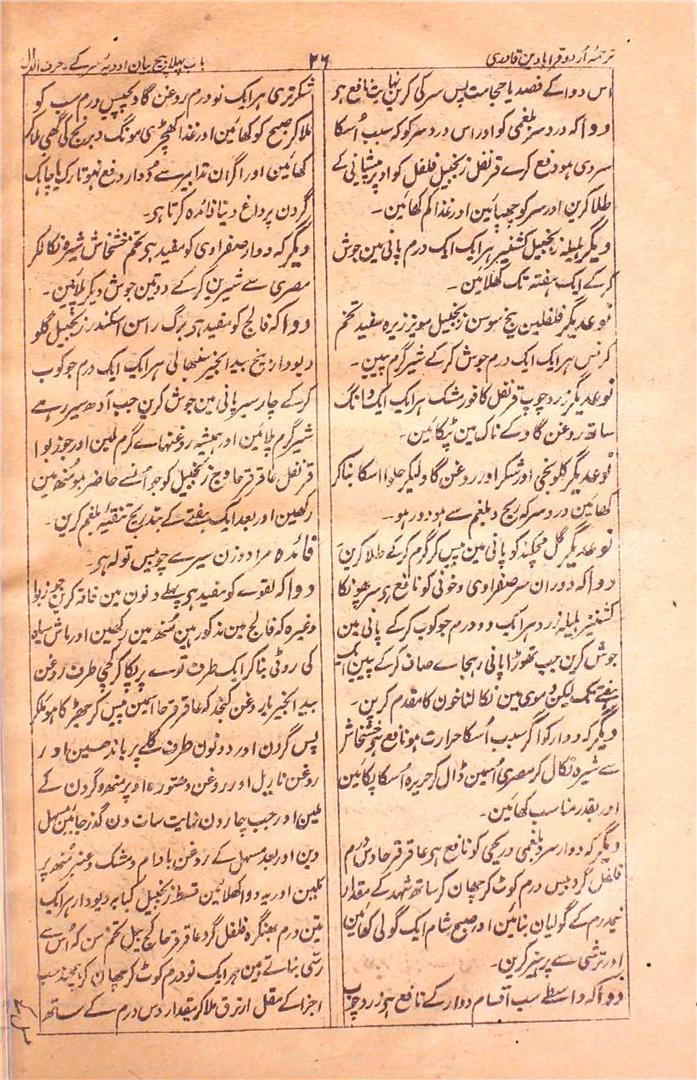 ترجمۂ اُردو قرابادین قادری
۲۶
باب پہلا بیچ بیان ادویۂ سر کے حرف الدال
اس دوا کے فصد یا حجامت پس سر کی کرین نہایت نافع ہو
دوا کہ درد سر بلغمی کو اور اس درد سر کو کہ سبب اُسکا
سردی ہو دفع کرے قرنفل زنجبیل فلفل کو اوپر پیشانی کے
طلا کرین اور سر کو چھپائین اور غذا کم کھائین۔
دیگر ہلیلہ زنجبیل کشنیز ہر ایک ایک درم پانی مین جوش
کرکے ایک ہفتہ تک کھلائین۔
نوعدیگر فلفلین بیخ سوسن زنجبیل مویز زیرہ سفید تخم
کرفس ہر ایک ایک درم جوش کرکے شیر گرم پیین۔
نوعدیگر زرد چوب قرنفل کافور مشک ہر ایک ایک دانگ
ساتھ روغن گاو کے ناک مین ٹپکائین۔
نوعدیگر کلونجی اور شکر اور روغن گاو لیکر حلوا اسکا بناکر
کھائین درد سر کو ریح و بلغم سے ہو دور ہو۔
نوعدیگر گل مچکند کو پانی مین پیس کر گرم کرکے طلا کرین
دوا کہ دوران سر صفراوی و خونی کو نافع ہو سرپھونکا
کشنیز ہلیلہ زرد ہر ایک دو درم جو کوب کرکے پانی مین
جوش کرین جب تھوڑا پانی رہجاے صاف کرکے پیین ایک
ہفتے تک لیکن دموی مین نکالنا خون کا مقدم کرین۔
دیگر کہ دوار کو اگر سبب اُسکا حرارت ہو نافع ہو خشخاش
سے شیرہ نکال کر مصری اُسمین ڈال کر حریرہ اُسکا پکائین
اور بقدر مناسب کھائین۔
دیگر کہ دوار سر بلغمی و ریحی کو نافع ہو عاقرقرحا دس درم
فلفل گرد بیس درم کوٹ کر چھان کر ساتھ شہد کے مقدار
نیم درم کے گولیان بنائین اور صبح شام ایک گولی کھائین
اور ترشی سے پرہیز کرین۔
دوا کہ واسطے سب اقسام دوار کے نافع ہو زرد چوب
شکر تری ہر ایک نو درم روغن گاو پچیس درم سب کو
ملاکر صبح کو کھائین اور غذا کھچڑی مونگ و برنج کی گھی ملاکر
کھائین اور اگر ان تدابیر سے دوار دفع نہو تارک یا چانک
گردن پر داغ دینا فائدہ کرتا ہو۔
دیگر کہ دوار صفراوی کو مفید ہو تخم خشخاش شیرہ نکالکر
مصری سے شیرین کرکے دو تین جوش دیکر پلائین۔
دوا کہ فالج کو مفید ہو برگ راسن اسکندر زنجبیل گلو
دیودار بیخ بید انجیر سنبھالی ہر ایک ایک درم جو کوب
کرکے چار سیر پانی مین جوش کرین جب آدھ سیر رہے
شیر گرم پلائین اور ہمیشہ روغنہاے گرم ملین اور جوزبوا
قرنفل عاقرقرحا وج زنجبیل کو جو اُنسے حاضر ہو مُنھ مین
رکھین اور بعد ایک ہفتے کے بتدریج تنقیۂ بلغم کرین۔
فائدہ مراد وزن سیر سے چوبیس تولہ ہو۔
دوا کہ لقوے کو مفید ہو پہلے دنون مین فاقہ کرین جوزبوا
وغیرہ کہ فالج مین مذکور ہین مُنھ مین رکھین اور ماش سیاہ
کی روٹی بناکر ایک طرف توے پر پکا کر کچی طرف روغن
بید انجیر یا روغن کنجد کہ عاقرقرحا اسمین پیس کر چھڑکا ہو ملکر
پس گردن اور دونون طرف گلے پر باندھین اور
روغن ناریل اور روغن دھتورہ اوپر منھ و گردن کے
ملین اور جب چار دن نہایت سات دن گذر جائین مسہل
دین اور بعد مسہل کے روغن بادام و مشک و عنبر مُنھ پر
ملین اور یہ دوا کھلائین قسط زنجبیل کبابہ دیودار ہر ایک
تین درم بھنگرہ فلفل گرد عاقرقرحا تخم سن کہ اُس سے
رسّی بناتے ہین ہر ایک نو درم کوٹ کر چھان کر ہمچند سب
اجزا کے مقل ازرق ملاکر مقدار دس درم کے ساتھ